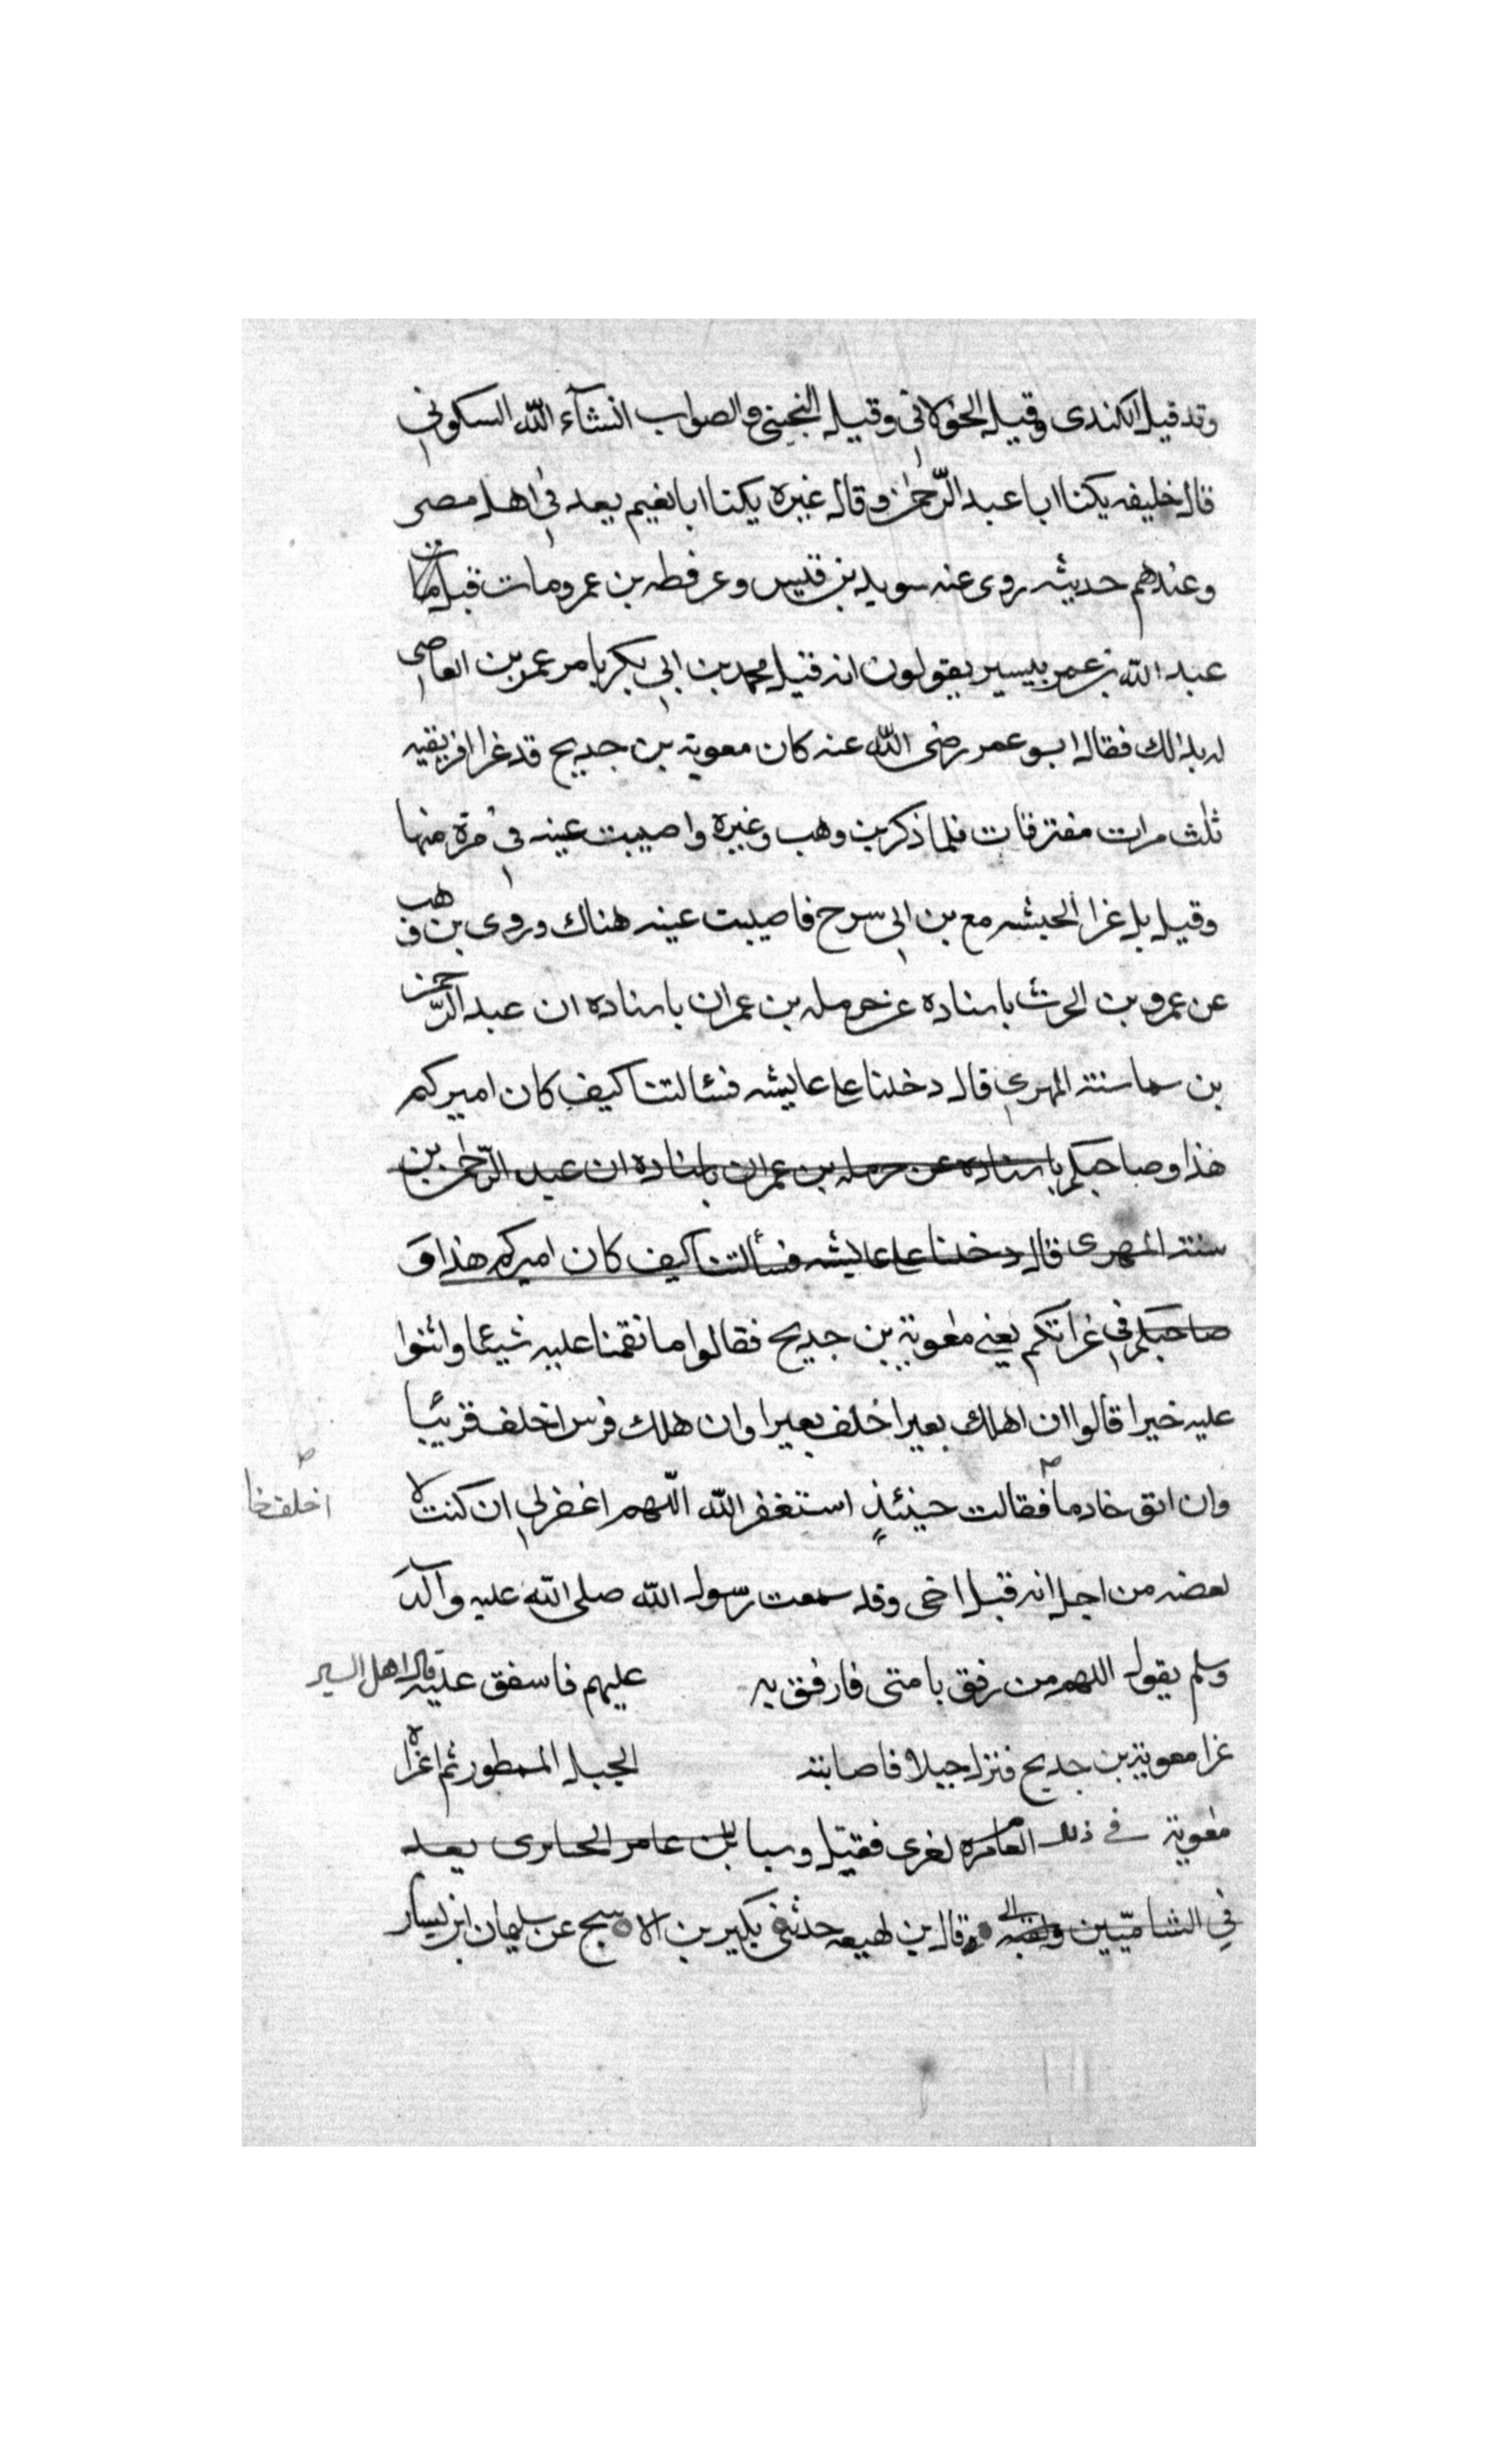 وقد قيل الكندى وقيل الخولانى وقيل التجيبى والصواب انشآء اللّه السكونى
قال خليفه يكنا ابا عبد الرّحمن وقال غيره يكنا ابا نعيم يعد فى اهل مصر
وعندهم حديثه روى عنه سويد بن قيس وعرفطه بن عمرو مات قبل
عبد اللّه بن عمر بيسير يقولون انه قتل محمد بن ابى بكر بامر عمرو بن العاصى
له بذلك فقال ابو عمر رضى اللّه عنه كان معوية بن جديح قد غزا افريقيه
ثلث مرات مفترقات فلما ذكر بن وهب وغيره واصيبت عينه فى مرة منها
وقيل بل غزا الحبشه مع بن ابى سرح فاصيبت عينه هناك وروى بن وهب
عن عمرو بن الحرث باسناده عن حرمله بن عمران باسناده ان عبد الرّحمن
بن سماسته المهرى قال دخلنا على عايشه فسئالتنا كيف كان اميركم
هذا وصاحبكم باسناده عن حرمله بن عمران باسناده ان عبد الرّحمن بن
سنته المهرى قال دخلنا على عايشه فسألتنا كيف كان اميركم هذا و
صاحبكم فى غزاتكم يعنى معوية بن جديح فقالوا ما نقمنا عليه شيئا واثنوا
عليه خيرا قالوا ان اهلك بعيرا اخلف بعيرا وان هلك فرس اخلف فرسا
وان ابق خادما فقالت حينئذٍ استغفر اللّه اللّهم اغفر لى ان كنت لا
اخلف خا
بعضه من اجل انه قتل اخى وقد سمعت رسول اللّه صلى اللّه عليه وآله
وسلم يقول اللهم من رفق بامتى فارفق به عليهم فاسفق عليه قال اهل السير
غزا معوية بن جديح فنزل جبلا فاصابته الجبل الممطور ثم اغزا
معوية فى ذلك لغزى فقتل وسبا بن عامر يعد
فى الشاميّين وقال بن لهيعه حدثنى بكير بن الاسبج عن سليمان ابن يسار